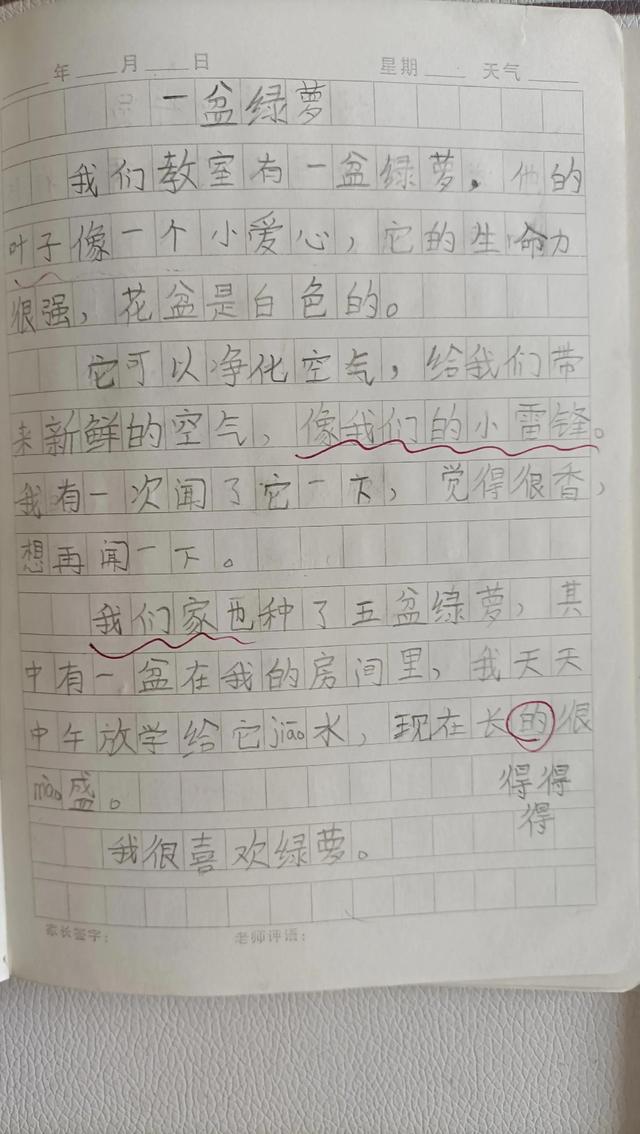 年 月 日 星期 天气
一盆绿萝
我们教室有一盆绿萝，他的
叶子像一个小爱心，它的生命力
很强，花盆是白色的。
它可以净化空气，给我们带
来新鲜的空气，像我们的小雷锋。
我有一次闻了它一下，觉得很香，
想再闻一下。
我们家也种了五盆绿萝，其
中有一盆在我的房间里，我天天
中午放学给它jiāo水，现在长的很
mào盛。
得得
得
我很喜欢绿萝。
家长签字： 老师评语：